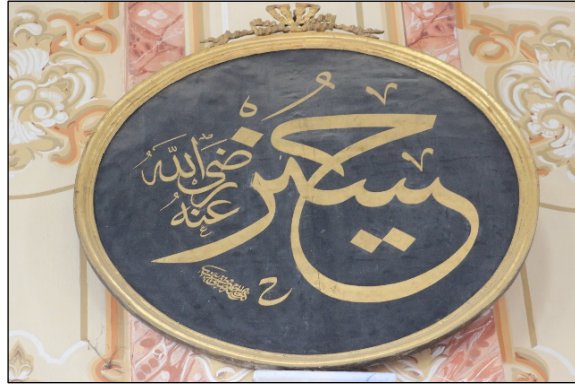 حسين
رضي الله
عنه